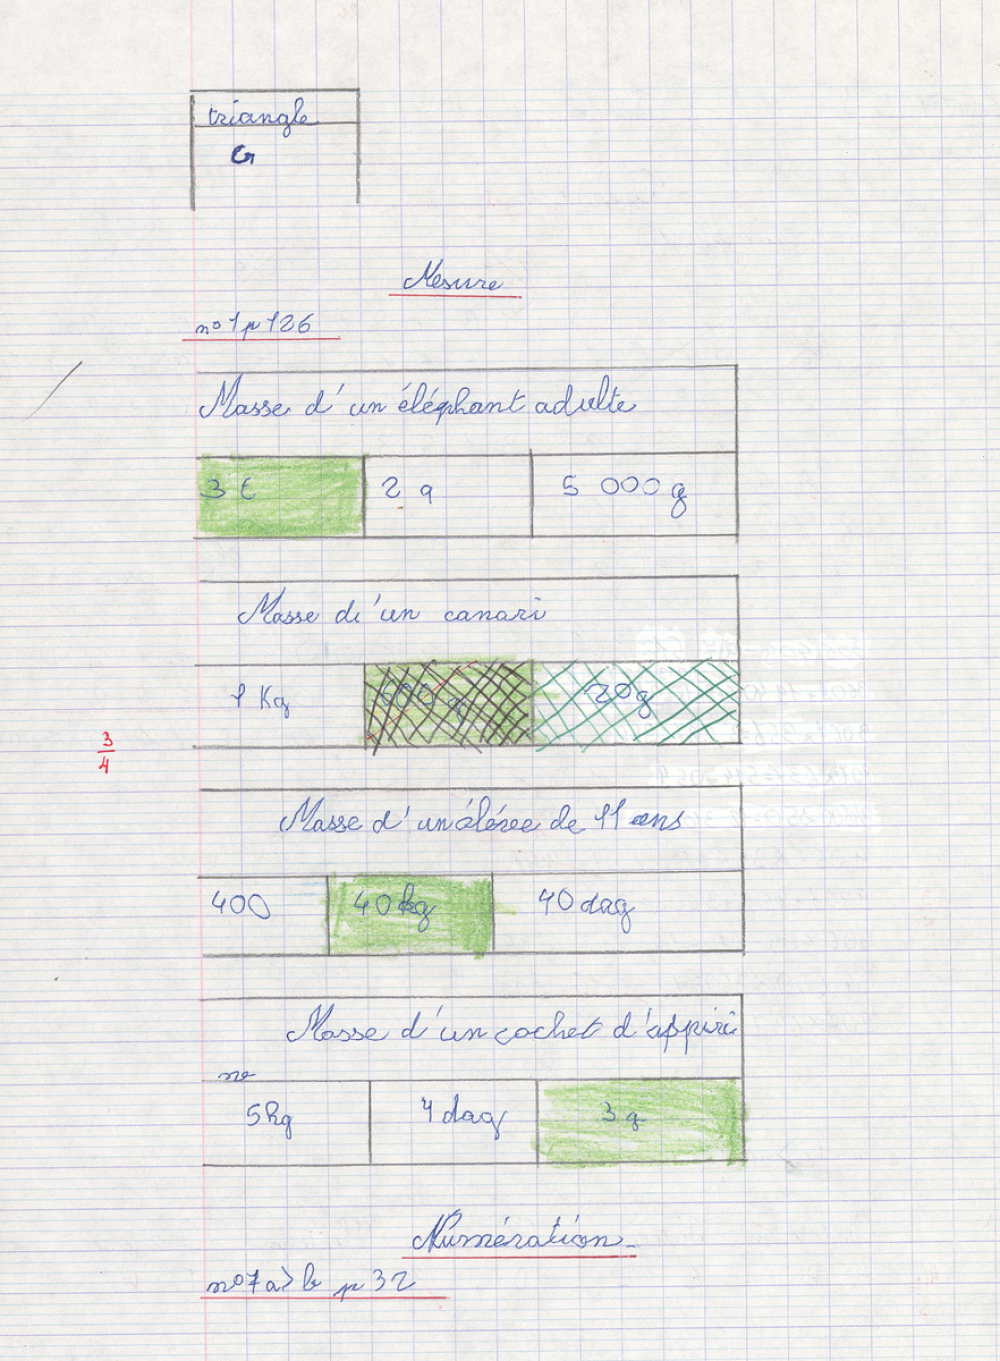 triangle
G
Mesure
n° 1 p 126
Masse d'un éléphant adulte
3 t 2 q 5 000 g
Masse d'un canari
1 Kg 20g
3
4
Masse d'un élévee de 11 ans
400 40kg 40 dag
Masse d'un cachet d'appiri
ne
5hg 4 dag 3 g
Numération
n°7 a> b p 32